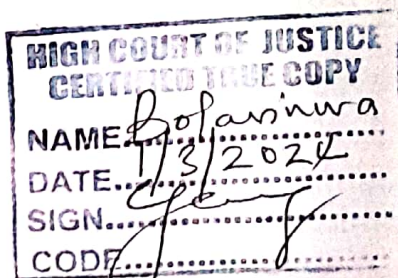 HIGH COURT OF JUSTICE
CERTIFIED TRUE COPY
NAME Bolarinwa
DATE 1/3/2024
SIGN
CODE